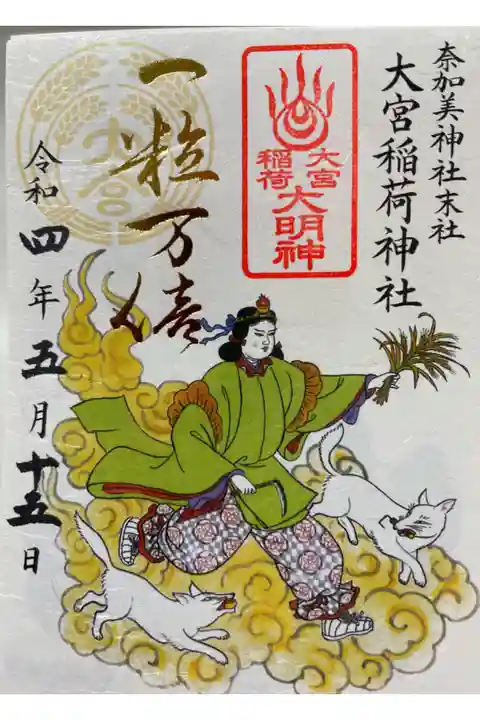 奈加美神社末社
大宮稲荷神社
大宮
稲荷
大明神
一粒万倍
令和四年五月十五日